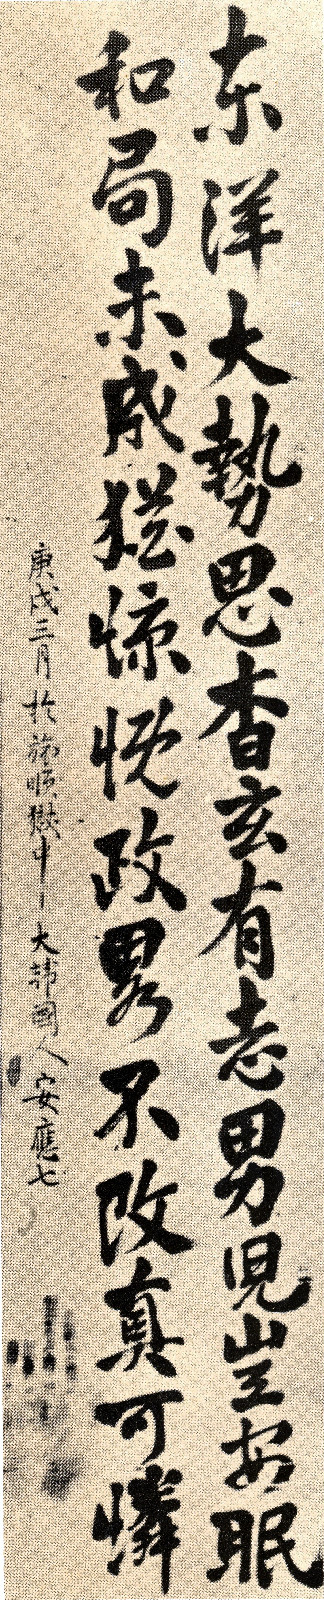 东洋大勢思杳玄有志男児豈安眠
和局未成猶慷慨政畧不改真可憐
庚戌三月於旅順獄中 大韓國人安應七